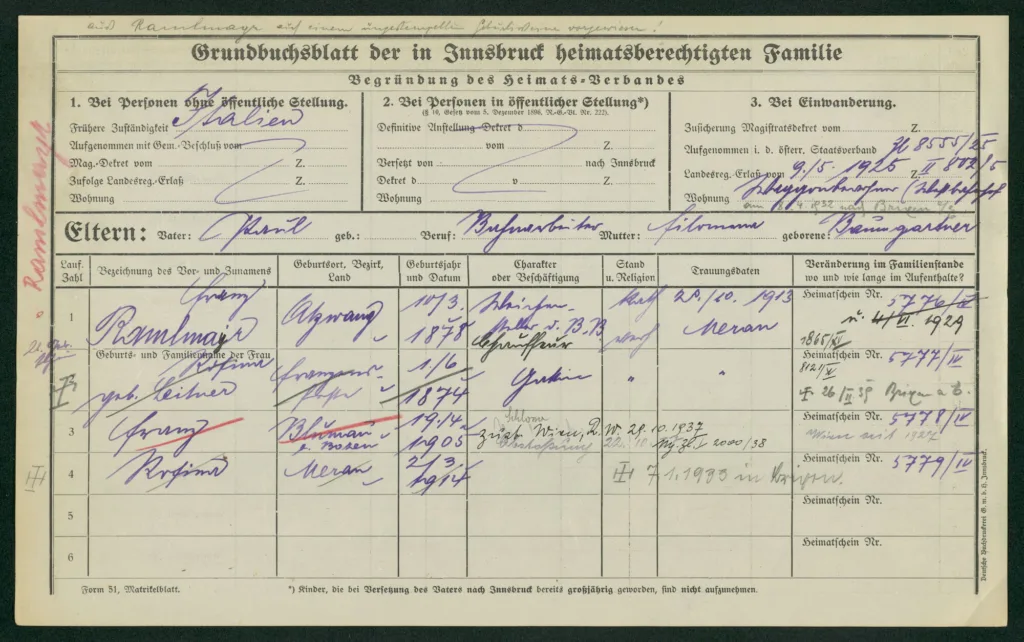 aus Ramlmayr auf einem ungestempelten vorgewiesen!
Grundbuchsblatt der in Innsbruck heimatsberechtigten Familie
Begründung des Heimats-Verbandes
1. Bei Personen ohne öffentliche Stellung.
Frühere Zuständigkeit Italien
Aufgenommen mit Gem.-Beschluß vom Z.
Mag.-Dekret vom Z.
Zufolge Landesreg.-Erlaß Z.
Wohnung
2. Bei Personen in öffentlicher Stellung*)
(§ 10, Gesetz vom 5. Dezember 1896, R.-G.-Bl. Nr. 222).
Definitive Anstellung Dekret d
vom Z.
Versetzt von nach Innsbruck
Dekret d v. Z.
Wohnung
3. Bei Einwanderung.
Zusicherung Magistratsdekret vom Z.
Aufgenommen i. d. österr. Staatsverband 8555/25
Landesreg.-Erlaß vom 9./5. 1925 Z. II 802/5
Wohnung
am 18.4.1932 nach Brixen
Ramlmayr
Eltern: Vater: Paul geb.: Beruf: Bahnarbeiter Mutter: Filomena geborene: Baumgartner
Lauf. Zahl
Bezeichnung des Vor- und Zunamens
Geburtsort, Bezirk, Land
Geburtsjahr und Datum
Charakter oder Beschäftigung
Stand u. Religion
Trauungsdaten
Veränderung im Familienstande wo und wie lange im Aufenthalte?
1 Franz Ramlmayr Atzwang 10/3. 1878 Weichensteller d. B.B. Chauffeur kath verh 28./10. 1913 Meran Heimatschein Nr. 5776/IV u. 4/VI. 1929
1865/XI
8121/V
Geburts- und Familienname der Frau
Rosina geb. Leitner Franzensfeste 1/6 1874 Gattin " " Heimatschein Nr. 5777/IV
26/II 39 Brixen a. E.
3 Franz Blumau b. Bozen 19./4. 1905 zust. Wien, D. W. 29.10.1937 2000/38 Heimatschein Nr. 5778/IV
Wien seit 1927
4 Rosina Meran 2/3. 1914 7.1.1933 in Brixen. Heimatschein Nr. 5779/IV
5 Heimatschein Nr.
6 Heimatschein Nr.
Form 51, Matrikelblatt.
*) Kinder, die bei Versetzung des Vaters nach Innsbruck bereits großjährig geworden, sind nicht aufzunehmen.
Deutsche Buchdruckerei G. m. b. H. Innsbruck.